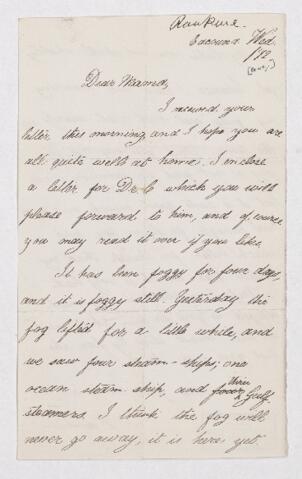 Rankine.
Wed.
Dear Mama,
I received your
letter this morning and I hope you are
all quite well at home. I inclose
a letter for Dr C which you will
please forward to him, and of course
you may read it over if you like.
It has been foggy for four days,
and it is foggy still. Yesterday the
fog lifted for a little while, and
we saw four steam-ships; one
ocean steam ship, and four three Gulf
steamers. I think the fog will
never go away, it is here yet.